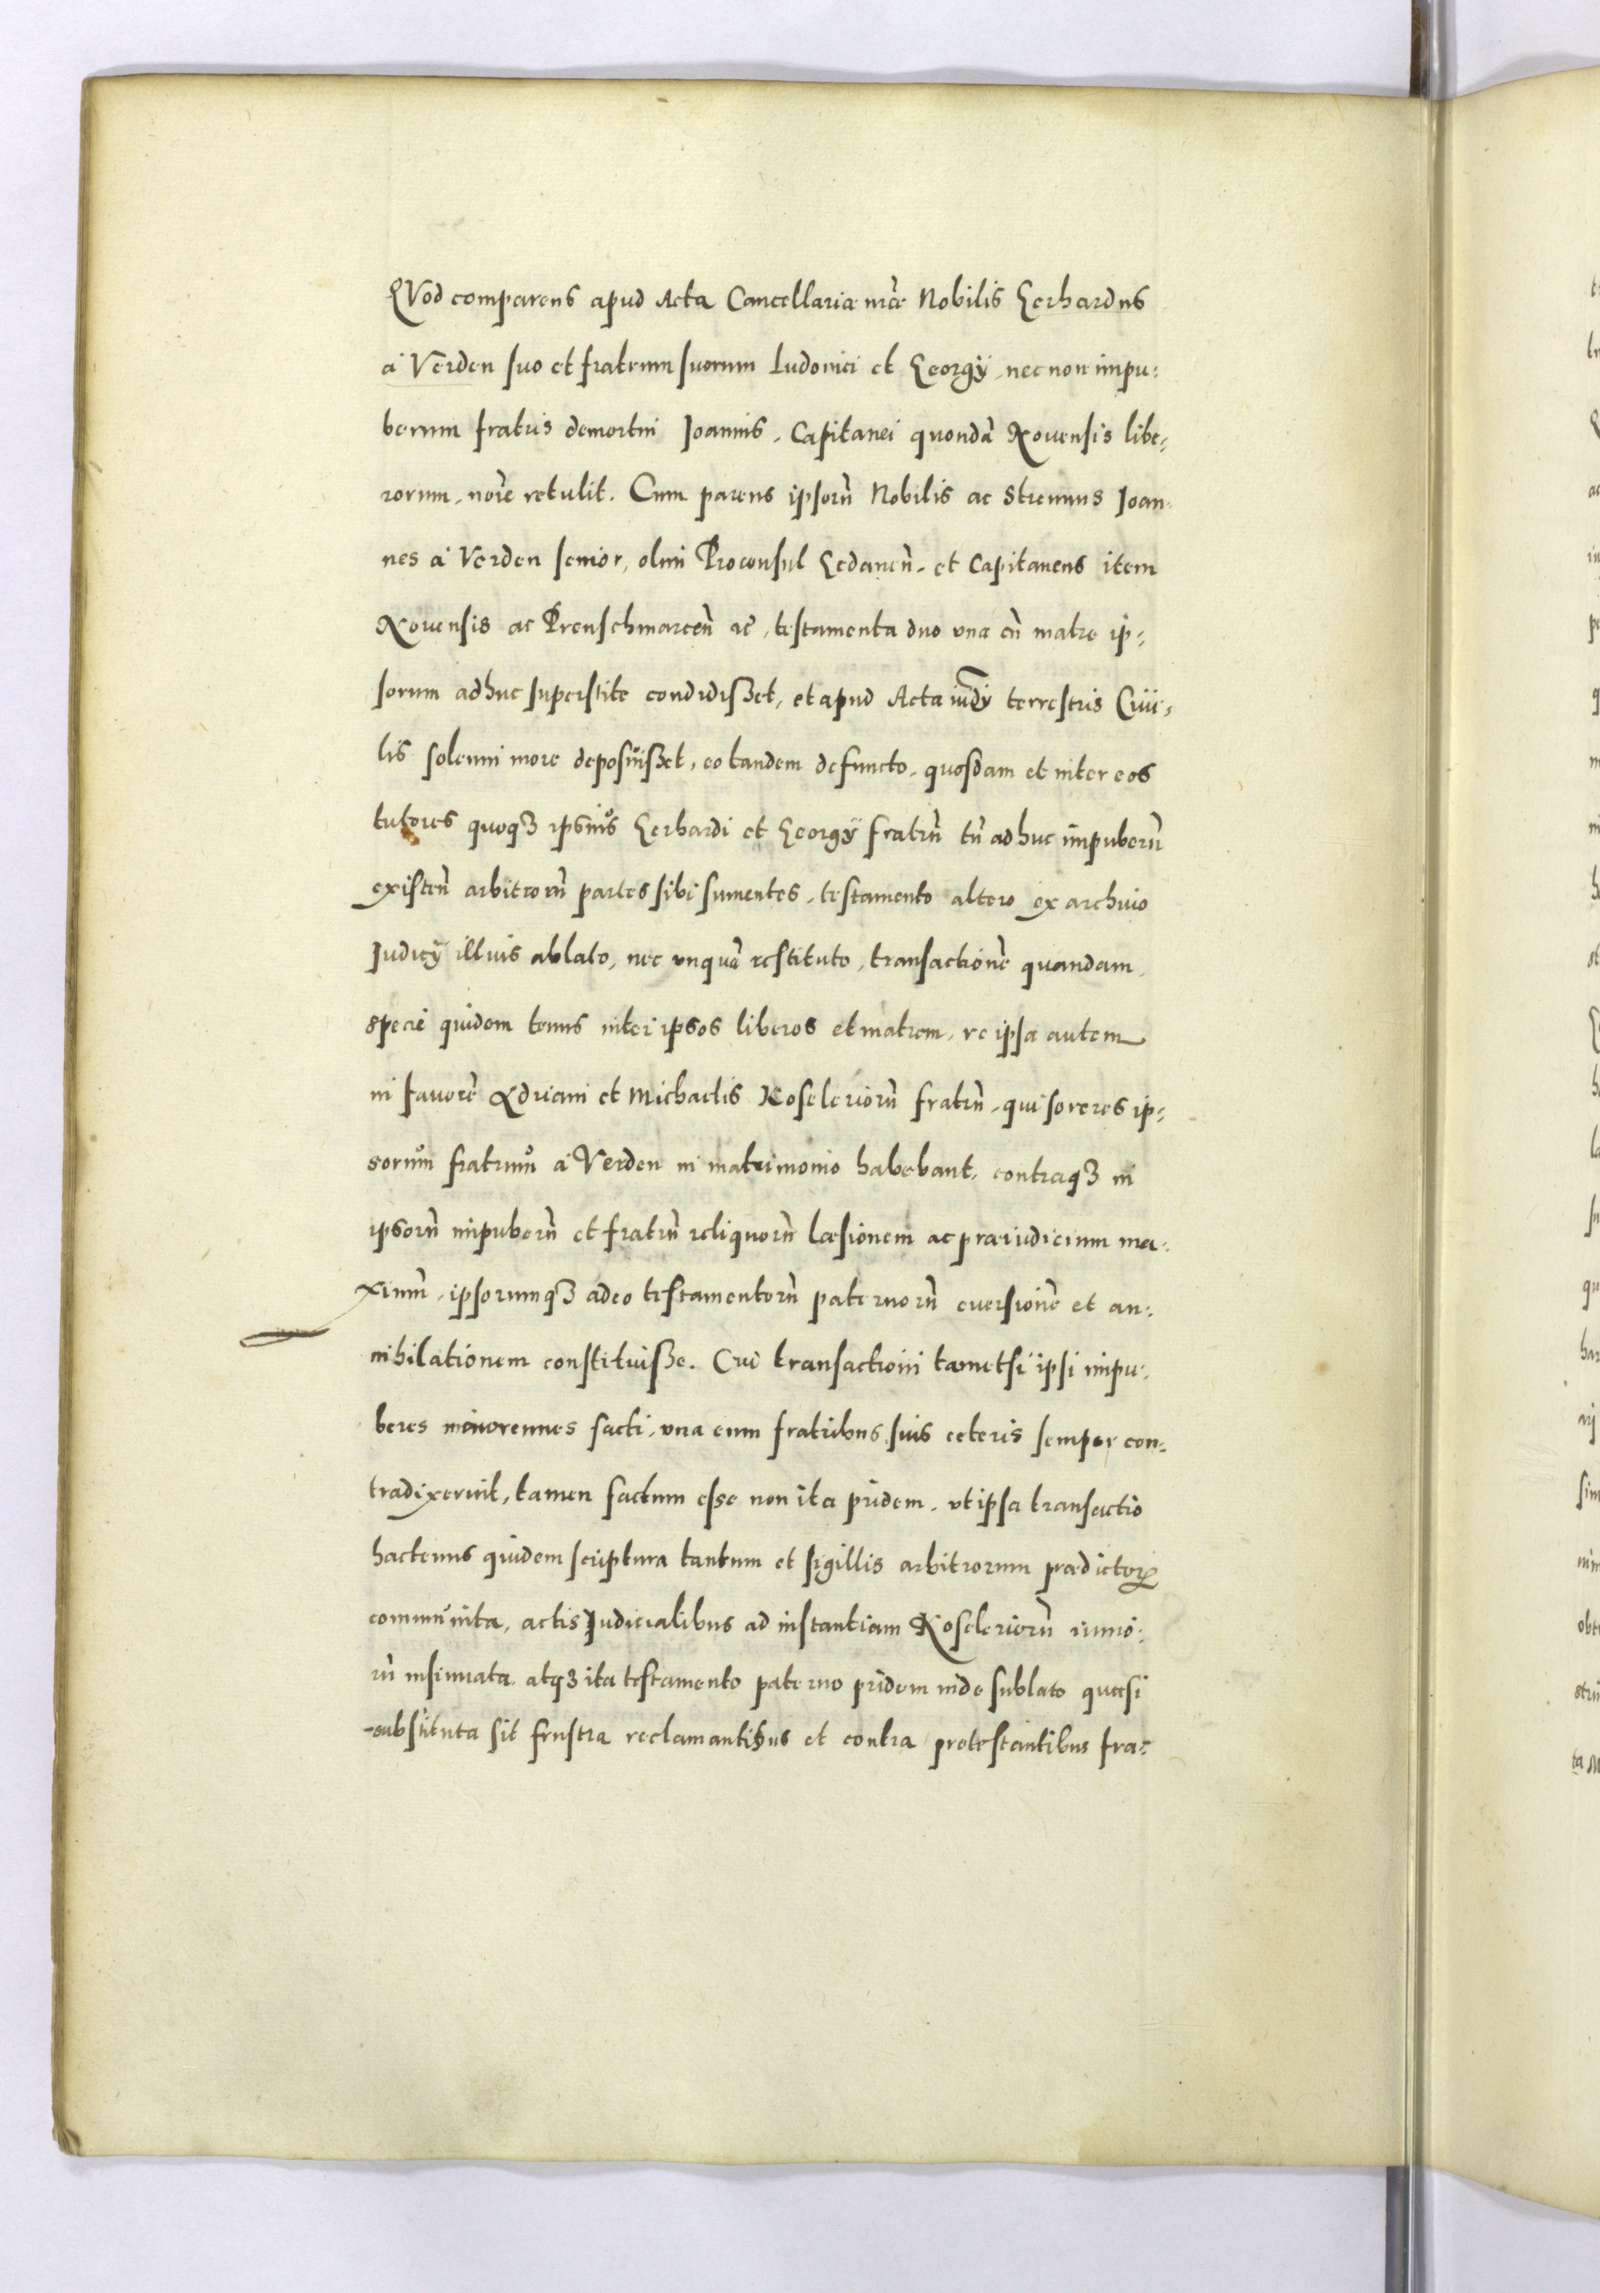 QVod comparens apud Acta Cancellariæ nr̃æ Nobilis Gerhardus
à Verden suo et fratrum suorum Ludouici et Georgÿ, nec non impu-
berum fratris demortui Joannis, Capitanei quondã Nouensis libe-
rorum, noĩe retulit. Cum parens ipsorũ Nobilis ac Strenuus Joan-
nes à Verden senior, olim Proconsul Gedaneñ, et Capitaneus item
Nouensis ac Preuschmarceñ ac̃, testamenta duo vna cũ matre ip-
sorum adhuc superstite condidisset, et apud Acta iudÿ terrestris Ciui-
lis solenni more deposuisset, eo tandem defuncto, quosdam et inter eos
tutores quoqꝫ ipsius Gerhardi et Georgÿ fratrũ tũ adhuc impuberũ
existeñ arbitrorũ partes sibi sumentes, testamento altero ex archiuo
Judicÿ illius ablato, nec vnquã restituto, transactionẽ quandam
specie quidem tenus inter ipsos liberos et matrem, re ipsa autem
in fauorẽ Adriani et Michaelis Koseleriorũ fratrũ, qui sorores ip-
sorum fratrum à Verden in matrimonio habebant, contraqꝫ in
ipsorũ impuberũ et fratrũ reliquorũ læsionem ac præiudicium ma-
ximũ, ipsorumqꝫ adeo testamentorũ paternorũ euersionẽ et an-
nihilationem constituisse. Cui transactioni tametsi ipsi impu-
beres maiorennes facti, vna cum fratribus suis ceteris semper con-
tradixerint, tamen factum esse non ita pridem, vt ipsa transactio
hactenus quidem scriptura tantum et sigillis arbitrorum prædictorꝝ
communita, actis Judicialibus ad instantiam Koseleriorũ iunio-
rũ insinuata atqꝫ ita testamento paterno pridem inde sublato quasi
substituta sit frustra reclamantibus et contra protestantibus fra-